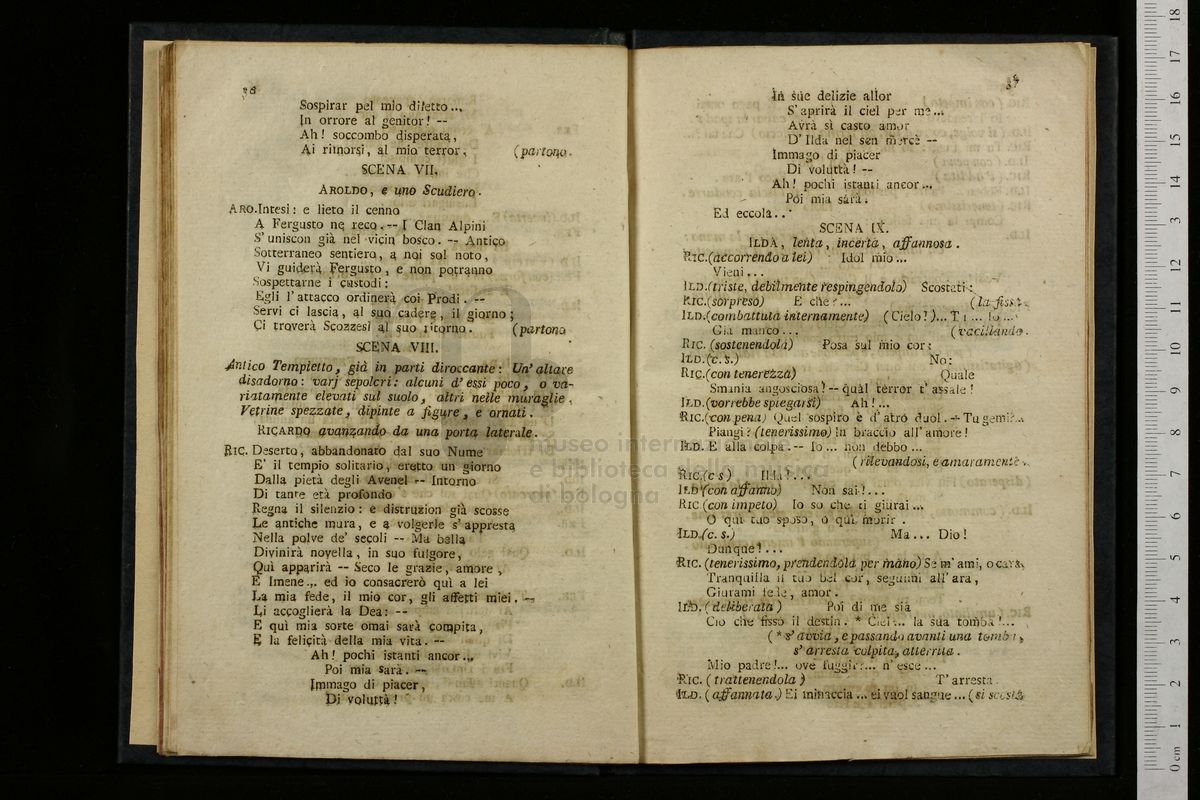 Sospirar pel mio diletto...
In orrore al genitor! --
Ah! soccombo disperata,
Ai rimorsi, al mio terror. (partono.
SCENA VII.
AROLDO, e uno Scudiero.
ARO. Intesi: e lieto il cenno
A Fergusto ne reco. -- I Clan Alpini
S' uniscon già nel vicin bosco. -- Antico
Sotterraneo sentiero, a noi sol noto,
Vi guiderà Fergusto, e non potranno
Sospettarne i custodi:
Egli l' attacco ordinerà coi Prodi. --
Servi ci lascia, al suo cadere, il giorno;
Ci troverà Scozzesi al suo ritorno. (partono
SCENA VIII.
Antico Tempietto, già in parti diroccante: Un' altare
disadorno: varj sepolcri: alcuni d' essi poco, o va-
riatamente elevati sul suolo, altri nelle muraglie.
Vetrine spezzate, dipinte a figure, e ornati.
RICARDO avanzando da una porta laterale.
RIC. Deserto, abbandonato dal suo Nume
E' il tempio solitario, eretto un giorno
Dalla pietà degli Avenel -- Intorno
Di tante età profondo
Regna il silenzio: e distruzion già scosse
Le antiche mura, e a volgerle s' appresta
Nella polve de' secoli -- Ma bella
Divinirà novella, in suo fulgore,
Quì apparirà -- Seco le grazie, amore,
E Imene... ed io consacrerò quì a lei
La mia fede, il mio cor, gli affetti miei. --
Li accoglierà la Dea: --
E quì mia sorte omai sarà compita,
E la felicità della mia vita. --
Ah! pochi istanti ancor...
Poi mia sarà. --
Immago di piacer,
Di voluttà!
In sue delizie allor
S' aprirà il ciel per me...
Avrà sì casto amor
D' Ilda nel sen mercè --
Immago di piacer
Di voluttà! --
Ah! pochi istanti ancor...
Poi mia sarà.
Ed eccola..
SCENA IX.
ILDA, lenta, incerta, affannosa.
RIC. (accorrendo a lei) Idol mio...
Vieni...
ILD. (triste, debilmente respingendolo) Scostati:
RIC. (sorpreso) E che?... (la fissa.
ILD. (combattuta internamente) (Cielo!)... Tu... Io...
Già manco... (vacillando.
RIC. (sostenendola) Posa sul mio cor:
ILD. (c. s.) No:
RIC. (con tenerezza) Quale
Smania angosciosa! -- quàl terror t' assale!
ILD. (vorrebbe spiegarsi) Ah!...
RIC. (con pena) Quel sospiro è d' atro duol. -- Tu gemi?..
Piangi? (tenerissimo) in braccio all' amore!
ILD. E alla colpa. -- Io... non debbo...
(rilevandosi, e amaramente.
RIC. (c s) Ilda!...
ILD (con affanno) Non sai!...
RIC (con impeto) Io so che ti giurai...
O quì tuo sposo, o quì morir.
ILD. (c. s.) Ma... Dio!
Dunque!...
RIC. (tenerissimo, prendendola per mano) Se m' ami, o cara,
Tranquilla il tuo bel cor, seguimi all' ara,
Giurami fede, amor.
ILD. (deliberata) Poi di me sia
Ciò che fisso il destin. * Ciel!... la sua tomba!...
(* s' avvia, e passando avanti una tomba,
s' arresta colpita, atterrita.
Mio padre!... ove fuggir:... n' esce...
RIC. (trattenendola) T' arresta.
ILD. (affannata.) Ei minaccia... ei vuol sangue... (si scosta
museo
e biblioteca della musica
di bologna